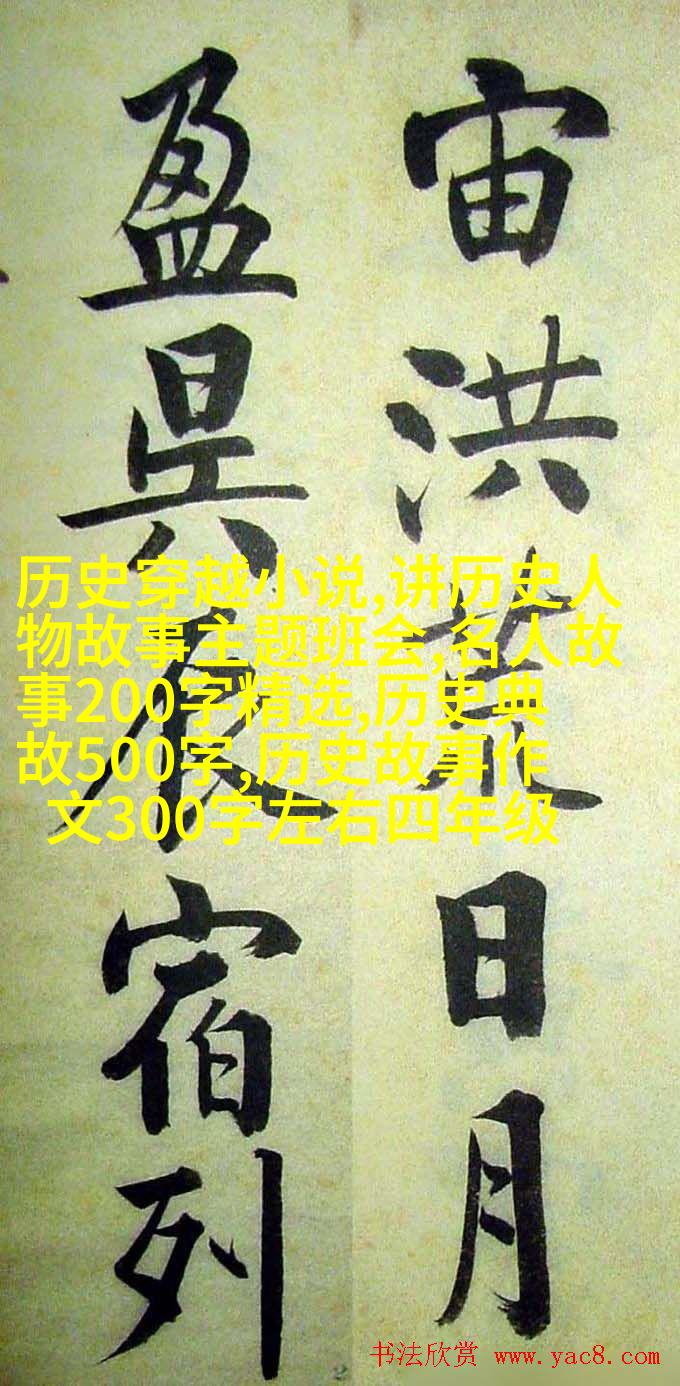 宙洪荒日月
盈昃辰宿列
历史穿越小说,讲历史人
物故事主题班会,名人故
事200字精选,历史典
故500字,历史故事作
文300字左右四年级
书法欣赏 www.yac8.com